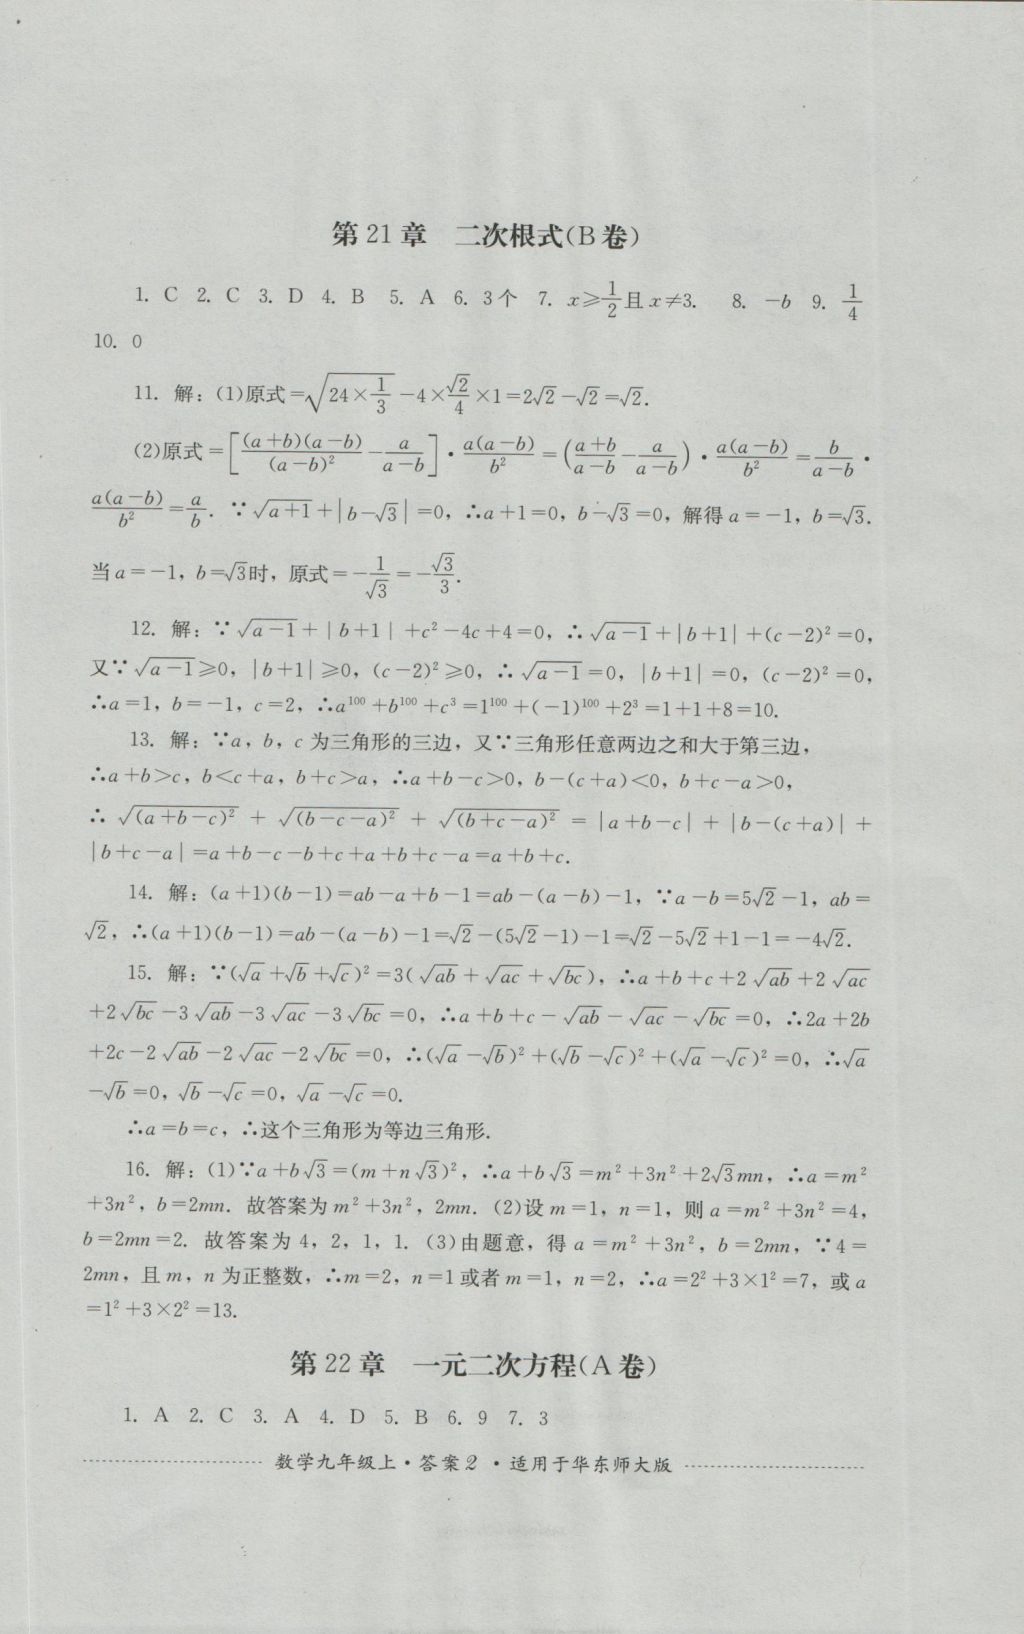 第21章　二次根式(B卷)
1. C 2. C 3. D 4. B 5. A 6. 3个 7. x≥1/2且x≠3. 8. -b 9. 1/4
10. 0
11. 解:(1)原式=√(24×1/3)-4×√2/4×1=2√2-√2=√2.
(2)原式=[(a+b)(a-b)/(a-b)²-a/(a-b)]·a(a-b)/b²=((a+b)/(a-b)-a/(a-b))·a(a-b)/b²=b/(a-b)·
a(a-b)/b²=a/b. ∵√(a+1)+|b-√3|=0, ∴a+1=0, b-√3=0, 解得a=-1, b=√3.
当a=-1, b=√3时, 原式=-1/√3=-√3/3.
12. 解: ∵√(a-1)+|b+1|+c²-4c+4=0, ∴√(a-1)+|b+1|+(c-2)²=0,
又∵√(a-1)≥0, |b+1|≥0, (c-2)²≥0, ∴√(a-1)=0, |b+1|=0, (c-2)²=0,
∴a=1, b=-1, c=2, ∴a¹⁰⁰+b¹⁰⁰+c³=1¹⁰⁰+(-1)¹⁰⁰+2³=1+1+8=10.
13. 解: ∵a, b, c为三角形的三边, 又∵三角形任意两边之和大于第三边,
∴a+b>c, b<c+a, b+c>a, ∴a+b-c>0, b-(c+a)<0, b+c-a>0,
∴√(a+b-c)² + √(b-c-a)² + √(b+c-a)² = |a+b-c| + |b-(c+a)| +
|b+c-a|=a+b-c-b+c+a+b+c-a=a+b+c.
14. 解: (a+1)(b-1)=ab-a+b-1=ab-(a-b)-1, ∵a-b=5√2-1, ab=
√2, ∴(a+1)(b-1)=ab-(a-b)-1=√2-(5√2-1)-1=√2-5√2+1-1=-4√2.
15. 解: ∵(√a+√b+√c)²=3(√ab+√ac+√bc), ∴a+b+c+2√ab+2√ac
+2√bc-3√ab-3√ac-3√bc=0, ∴a+b+c-√ab-√ac-√bc=0, ∴2a+2b
+2c-2√ab-2√ac-2√bc=0, ∴(√a-√b)²+(√b-√c)²+(√a-√c)²=0, ∴√a
-√b=0, √b-√c=0, √a-√c=0.
∴a=b=c, ∴这个三角形为等边三角形.
16. 解: (1)∵a+b√3=(m+n√3)², ∴a+b√3=m²+3n²+2√3mn, ∴a=m²
+3n², b=2mn. 故答案为m²+3n², 2mn. (2)设m=1, n=1, 则a=m²+3n²=4,
b=2mn=2. 故答案为4, 2, 1, 1. (3)由题意, 得a=m²+3n², b=2mn, ∵4=
2mn, 且m, n为正整数, ∴m=2, n=1或者m=1, n=2, ∴a=2²+3×1²=7, 或a
=1²+3×2²=13.
第22章　一元二次方程(A卷)
1. A 2. C 3. A 4. D 5. B 6. 9 7. 3
数学九年级上·答案2·适用于华东师大版